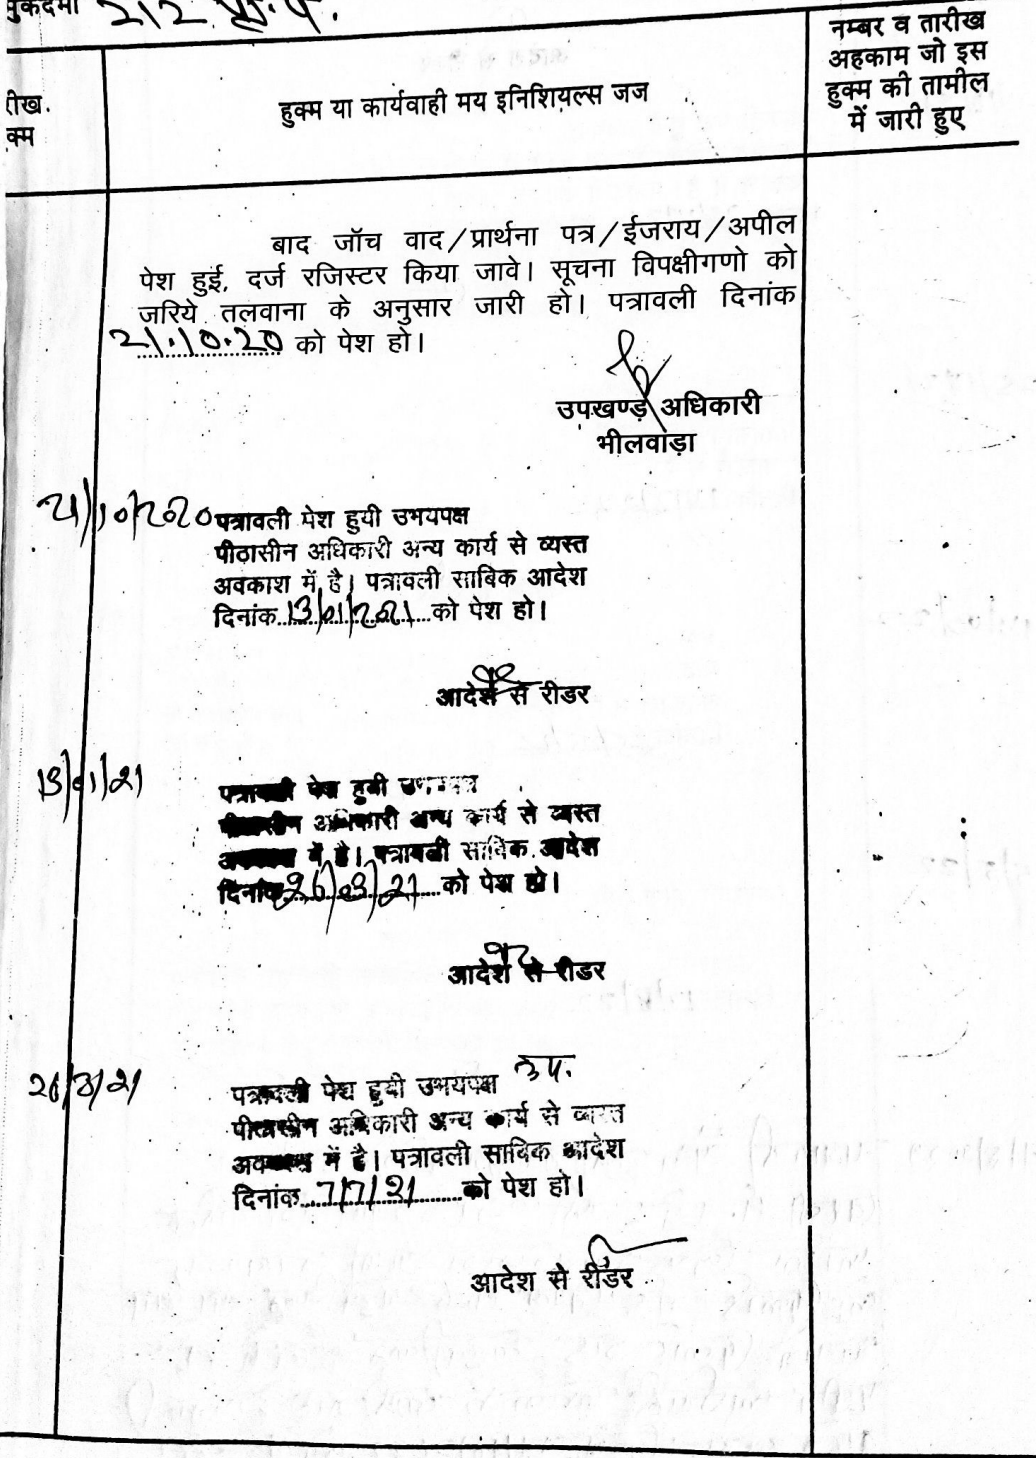 मुकदमा 212
नम्बर व तारीख
अहकाम जो इस
हुक्म की तामील
में जारी हुए
रीख.
क्म
हुक्म या कार्यवाही मय इनिशियल्स जज
बाद जॉच वाद/प्रार्थना पत्र/ईजराय/अपील
पेश हुई, दर्ज रजिस्टर किया जावे। सूचना विपक्षीगणो को
जरिये तलवाना के अनुसार जारी हो। पत्रावली दिनांक
21.10.20 को पेश हो।
उपखण्ड अधिकारी
भीलवाड़ा
21/10/2020 पत्रावली पेश हुयी उभयपक्ष
पीठासीन अधिकारी अन्य कार्य से व्यस्त
अवकाश में है। पत्रावली साबिक आदेश
दिनांक 13/01/2021 को पेश हो।
आदेश से रीडर
13/01/21
पत्रावली पेश हुयी उभयपक्ष
पीठासीन अधिकारी अन्य कार्य से व्यस्त
अवकाश में है। पत्रावली साबिक आदेश
दिनांक 26/03/21 को पेश हो।
आदेश से रीडर
26/3/21
पत्रावली पेश हुयी उभयपक्ष उप.
पीठासीन अधिकारी अन्य कार्य से व्यस्त
अवकाश में है। पत्रावली साबिक आदेश
दिनांक 7/7/21 को पेश हो।
आदेश से रीडर